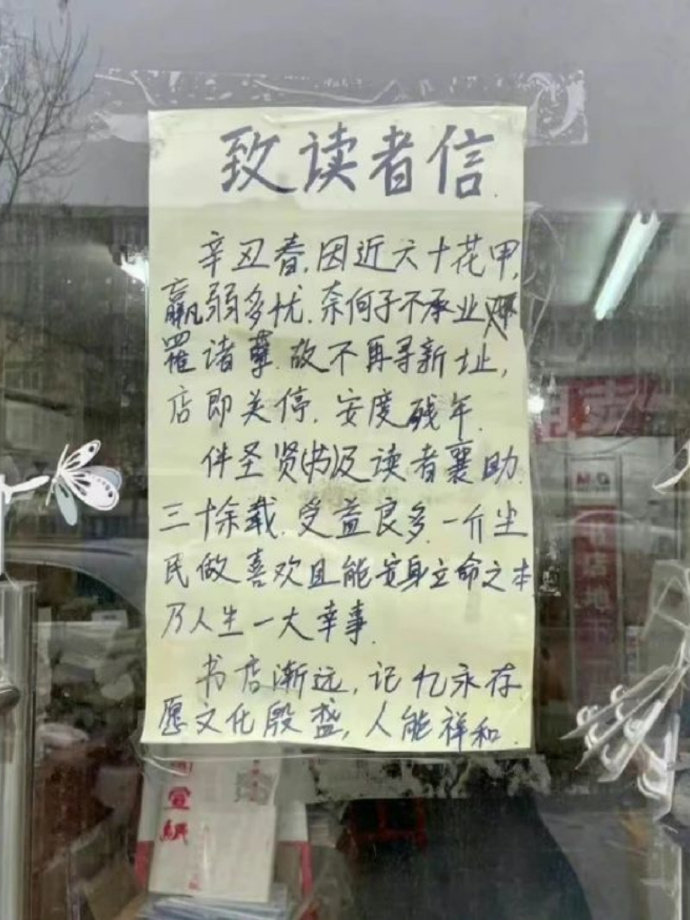 致读者信
辛丑春,因近六十花甲,
羸弱多忧.奈何子不承业
罹诸孽.故不再寻新址,
店即关停.安度残年.
伴圣贤(书)及读者襄助.
三十余载.受益良多.一介尘
民做喜欢且能安身立命之本
乃人生一大幸事.
书店渐远,记忆永存
愿文化殷盛,人能祥和.
宣紙